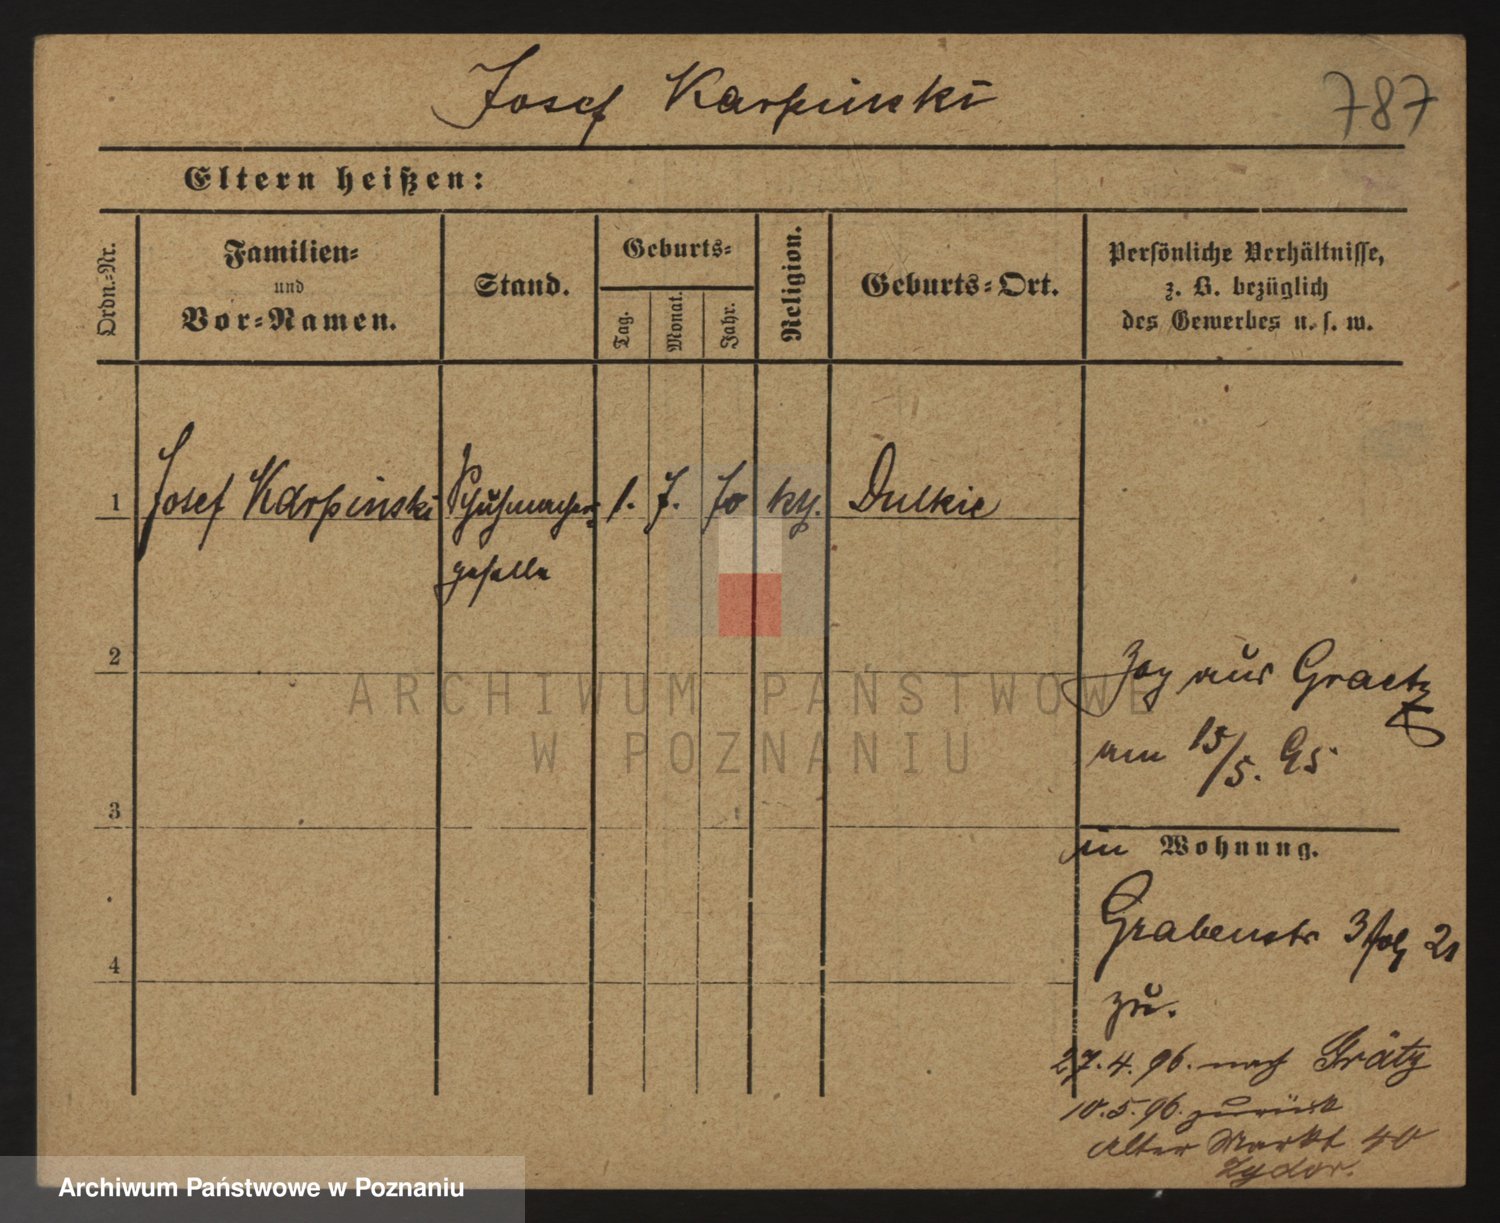 Josef Karpinski
787
Eltern heißen:
Ordn.-Nr.
Familien-
und
Vor-Namen.
Stand.
Geburts-
Tag.
Monat.
Jahr.
Religion.
Geburts-Ort.
Persönliche Verhältnisse,
z. B. bezüglich
des Gewerbes u. s. w.
1 Josef Karpinski Schuhmacher- 1. 7. 70 kth. Dulkie
geselle
2
Zog aus Graetz
am 15/5. 95
3
in Wohnung.
Grabenstr 3
4
zu.
27.4.96. nach Grätz
10.5.96. zurück
Alter Markt 40
ARCHIWUM PAŃSTWOWE
W POZNANIU
Archiwum Państwowe w Poznaniu